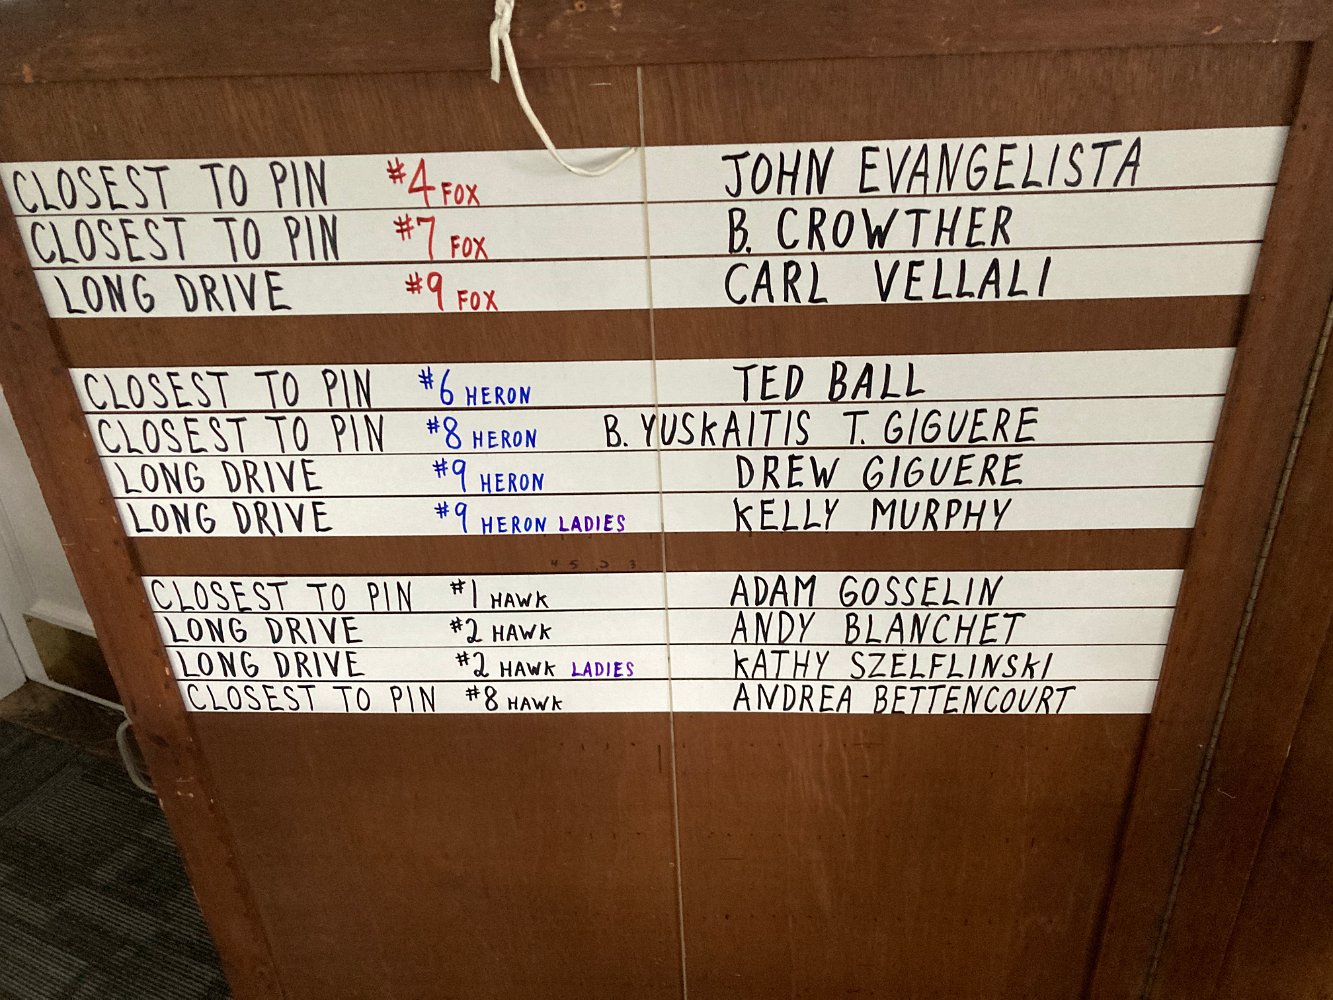 CLOSEST TO PIN #4 FOX JOHN EVANGELISTA
CLOSEST TO PIN #7 FOX B. CROWTHER
LONG DRIVE #9 FOX CARL VELLALI
CLOSEST TO PIN #6 HERON TED BALL
CLOSEST TO PIN #8 HERON B. YUSKAITIS T. GIGUERE
LONG DRIVE #9 HERON DREW GIGUERE
LONG DRIVE #9 HERON LADIES KELLY MURPHY
CLOSEST TO PIN #1 HAWK ADAM GOSSELIN
LONG DRIVE #2 HAWK ANDY BLANCHET
LONG DRIVE #2 HAWK LADIES KATHY SZELFLINSKI
CLOSEST TO PIN #8 HAWK ANDREA BETTENCOURT